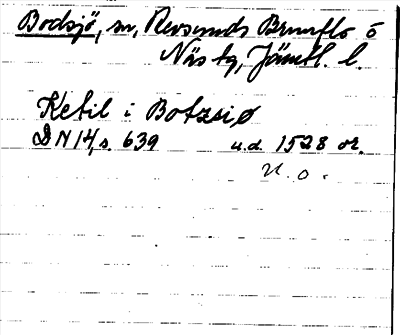 Bodsjö, sn, Revsunds Brunflo o
Näs tg, Jämtl. l.
Ketil i Botzsiø
DN 14, s. 639 u.d. 1528 or.
U. o.